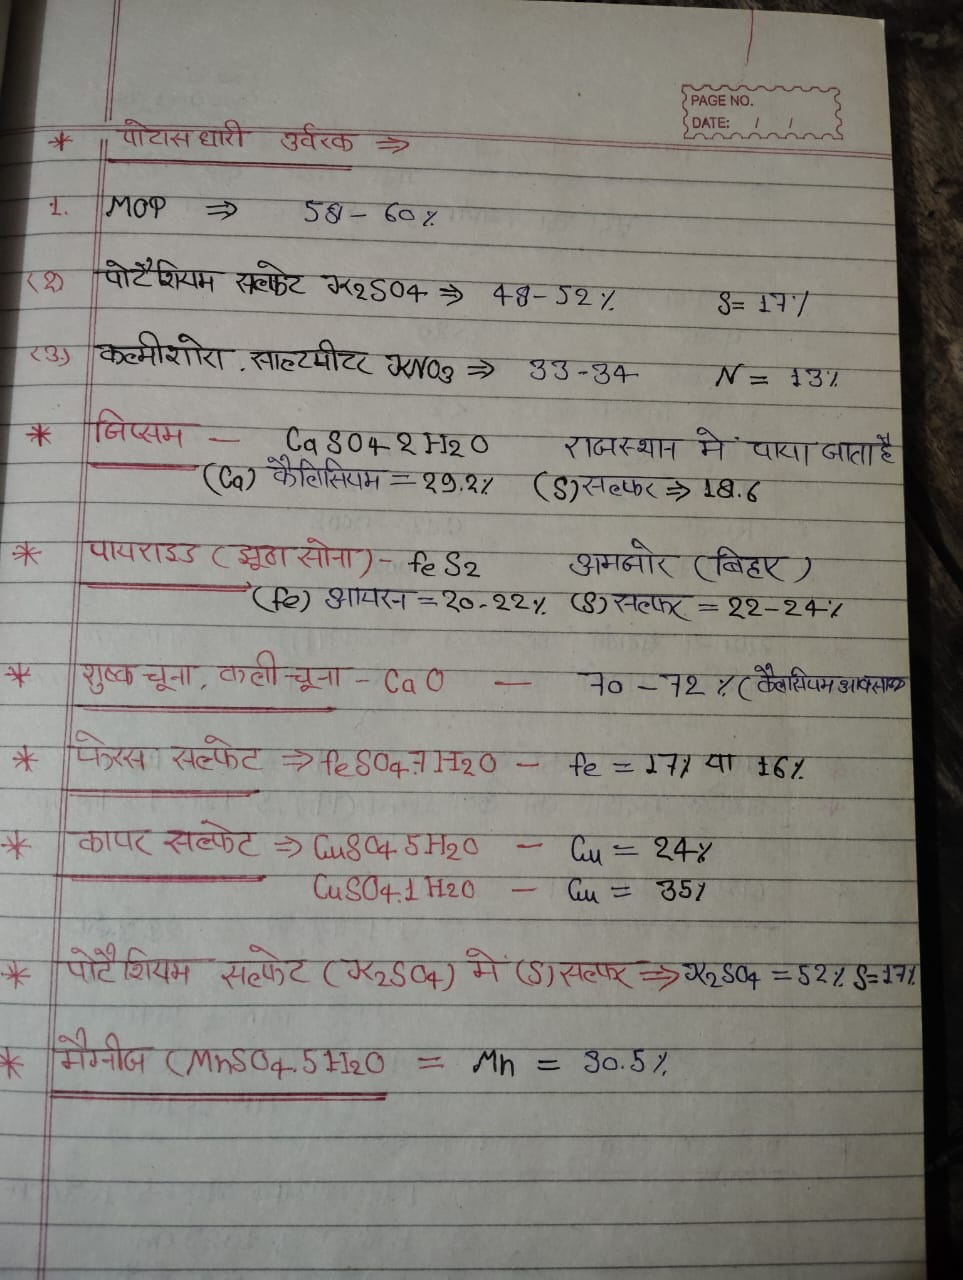 PAGE NO.
DATE: / /
* पोटास धारी उर्वरक ⇒
1. MOP ⇒ 58 - 60%
(2) पोटैशियम सल्फेट K2SO4 ⇒ 48-52% S= 17%
(3) कल्मीशोरा, साल्टपीटर KNO3 ⇒ 33-34 N = 13%
* जिप्सम - CaSO4 2H2O राजस्थान में पाया जाता है
(Ca) कैलिसियम = 29.2% (S) सल्फर ⇒ 18.6
* पायराइड (झूठा सोना) - feS2 अमनोर (बिहार)
(fe) आयरन = 20-22% (S) सल्फर = 22-24%
* शुष्क चूना, कली चूना - CaO - 70 - 72% (कैलसियम आक्साइड
* फेरस सल्फेट ⇒ feSO4.7H2O - fe = 17% या 16%
* कापर सल्फेट ⇒ CuSO4 5H2O - Cu = 24%
CuSO4.1H2O - Cu = 35%
* पोटैशियम सल्फेट (K2SO4) में (S) सल्फर ⇒ K2SO4 = 52% S=17%
* मैग्नीज (MnSO4.5H2O = Mn = 30.5%